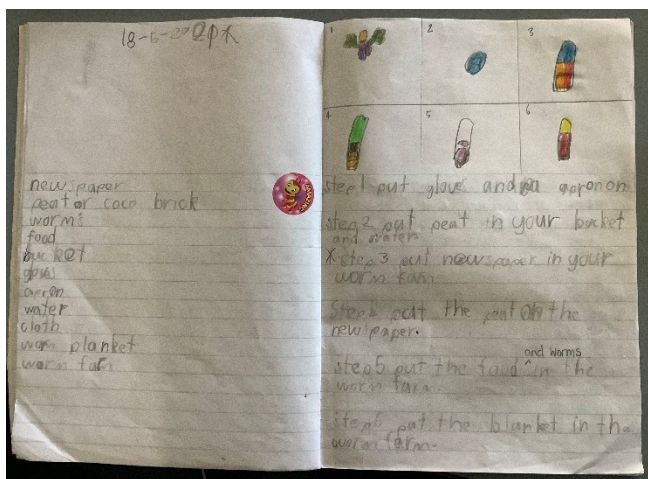 18-6-20
newspaper
peat or coco brick
worms
food
bucket
gloves
apron
water
cloth
worm planket
worm farm
1
2
3
4
5
6
step 1 put gloves and apron on
step 2 put peat in your bucket
and water
*step 3 put newspaper in your
worm farm
Step 4 put the peat on the
newspaper.
and worms
step 5 put the food ^ in the
worm farm
step 6 put the blanket in the
worm farm.